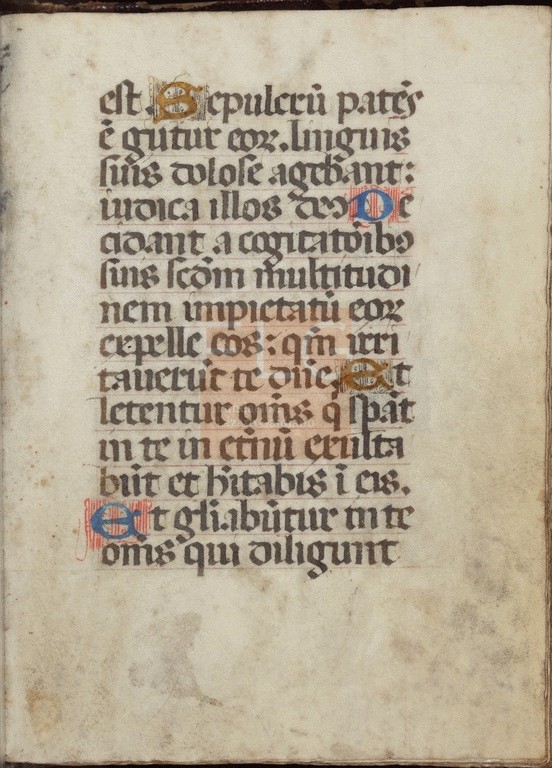 est. Sepulcrū patēs
ē gutur eoꝝ. linguis
suis dolose agebant:
iudica illos deꝰ De
cidant a cogitatōibꝰ
suis scđm multitudi
nem impietatū eoꝝ
expelle eos: qm̄ irri
tauerūt te dñe. Et
letentur om̄s q̄ spāt
in te in etn̄ū exulta
būt et hītabis ī eis.
Et gl̄iabūtur in te
om̄s qui diligunt